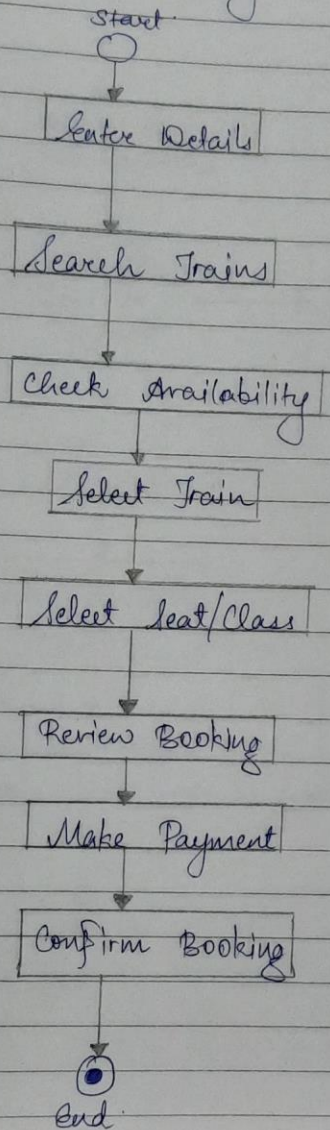 Start
Enter Details
Search Trains
Check Availability
Select Train
Select Seat/Class
Review Booking
Make Payment
Confirm Booking
End